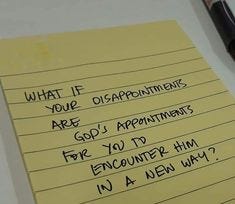 WHAT IF
YOUR DISAPPOINTMENTS
ARE
GOD'S APPOINTMENTS
FOR YOU TO
ENCOUNTER HIM
IN A NEW WAY?